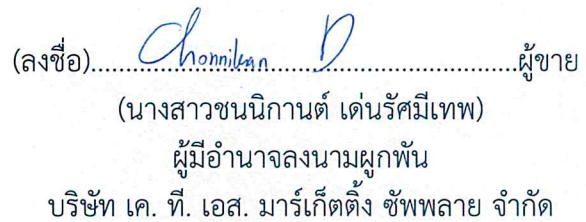 (ลงชื่อ)..........Chonnikan D..........ผู้ขาย
(นางสาวชนนิกานต์ เด่นรัศมีเทพ)
ผู้มีอำนาจลงนามผูกพัน
บริษัท เค. ที. เอส. มาร์เก็ตติ้ง ซัพพลาย จำกัด